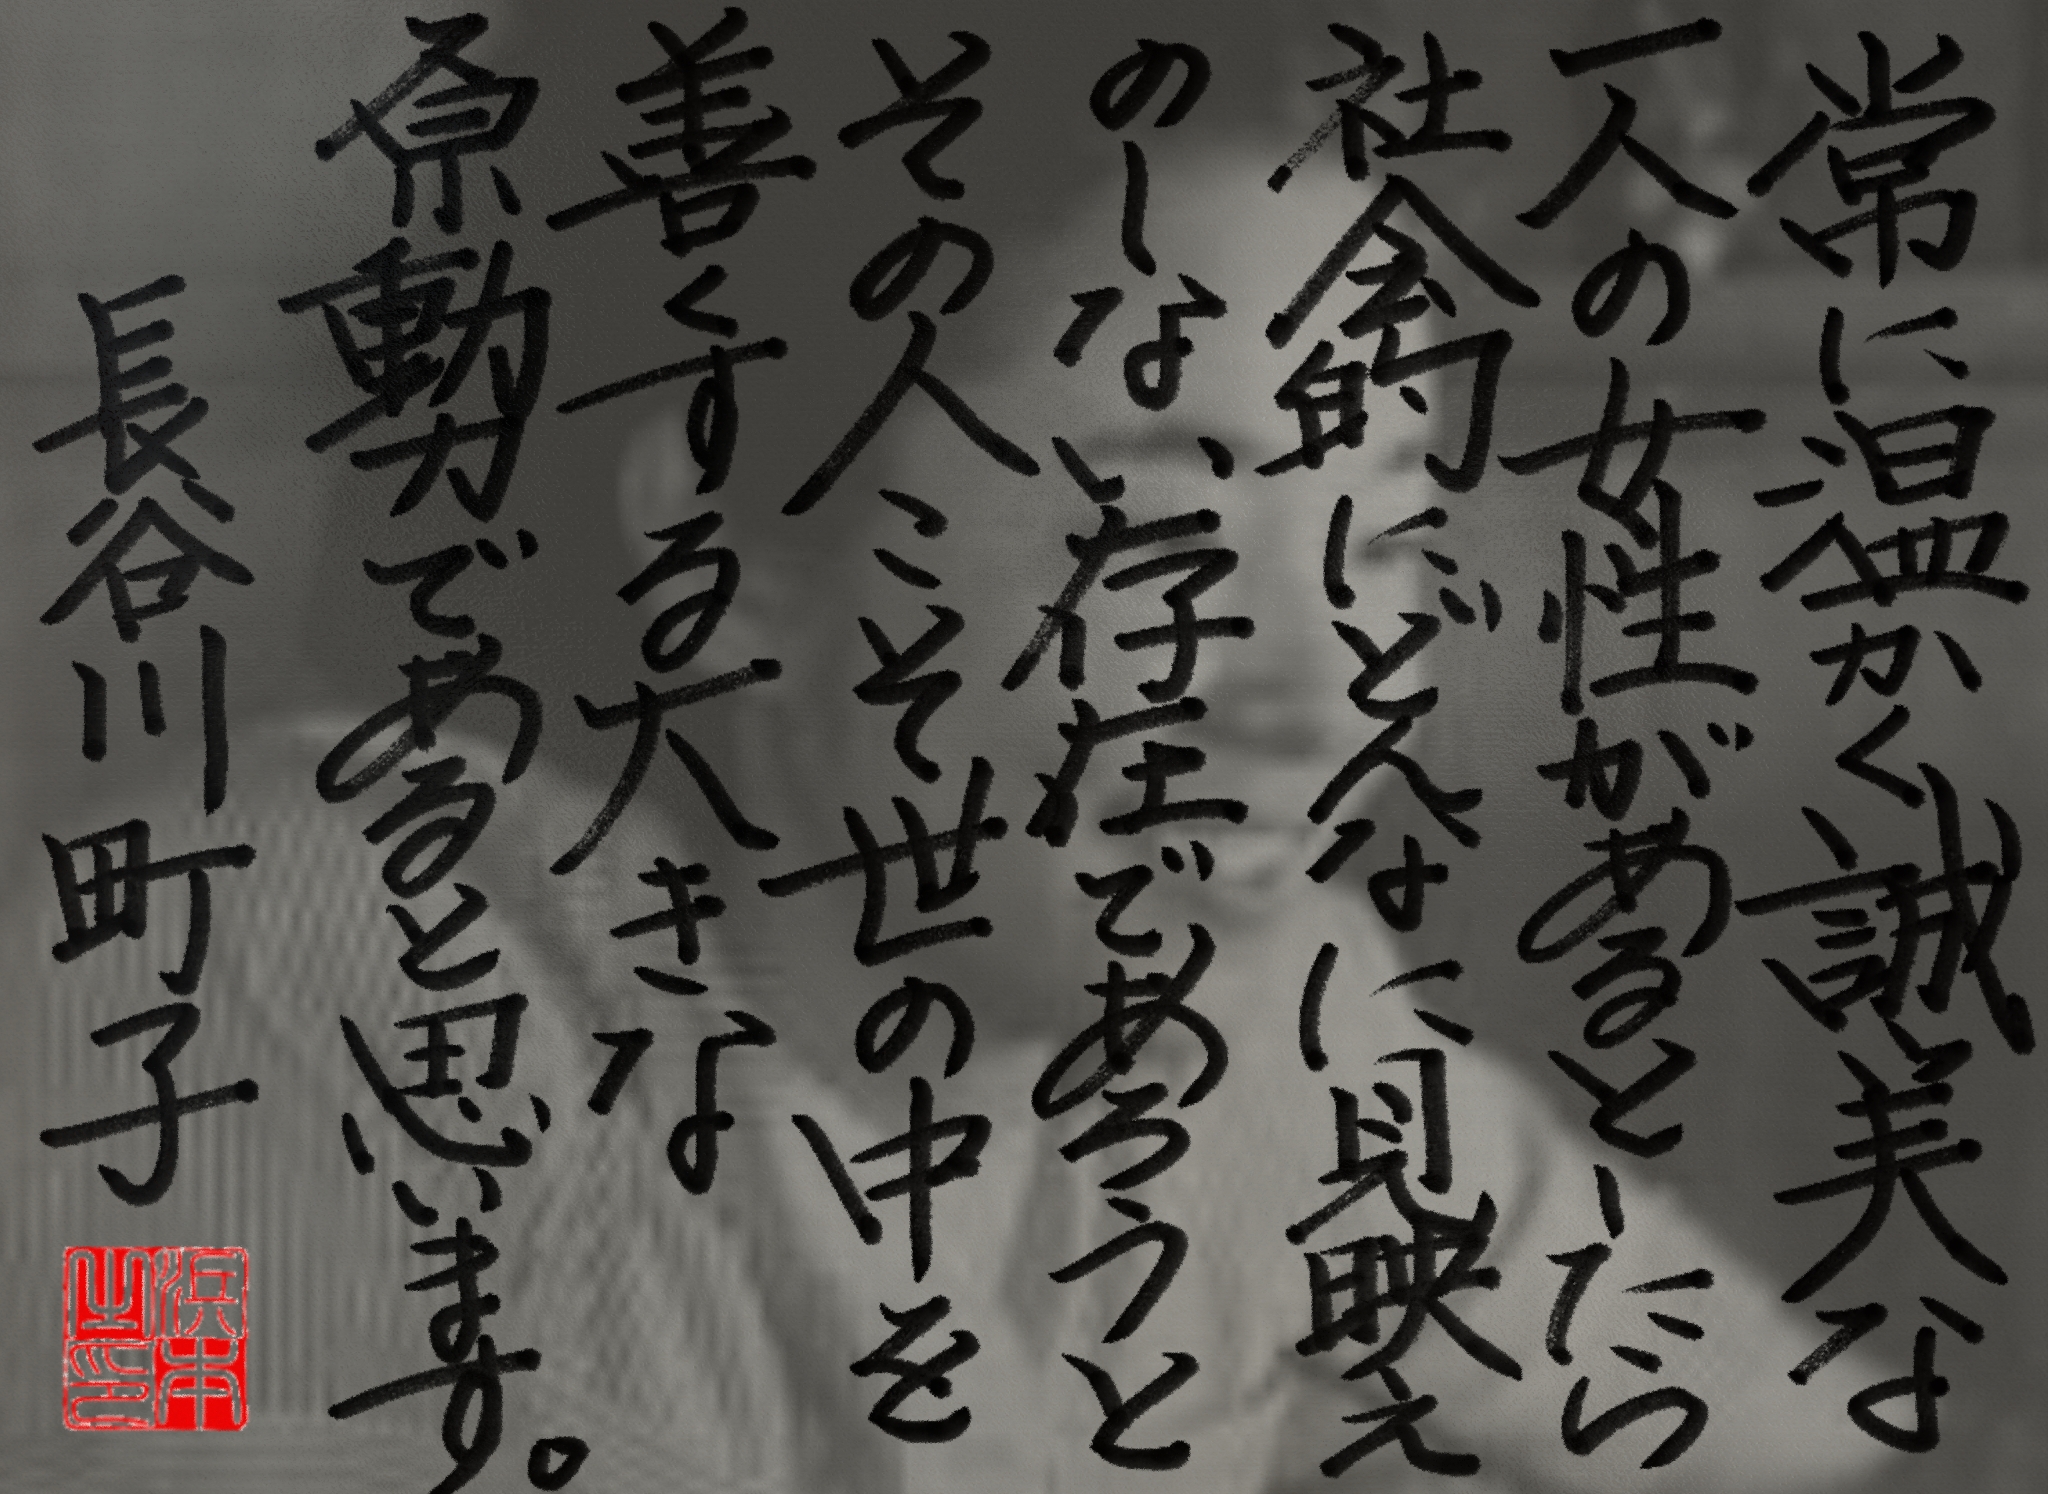 常に温かく誠実な
一人の女性があるとしたら
社会的にどんなに見映え
のしない存在であろうと
その人こそ世の中を
善くする大きな
原動力であると思います。
長谷川町子
浜本之印